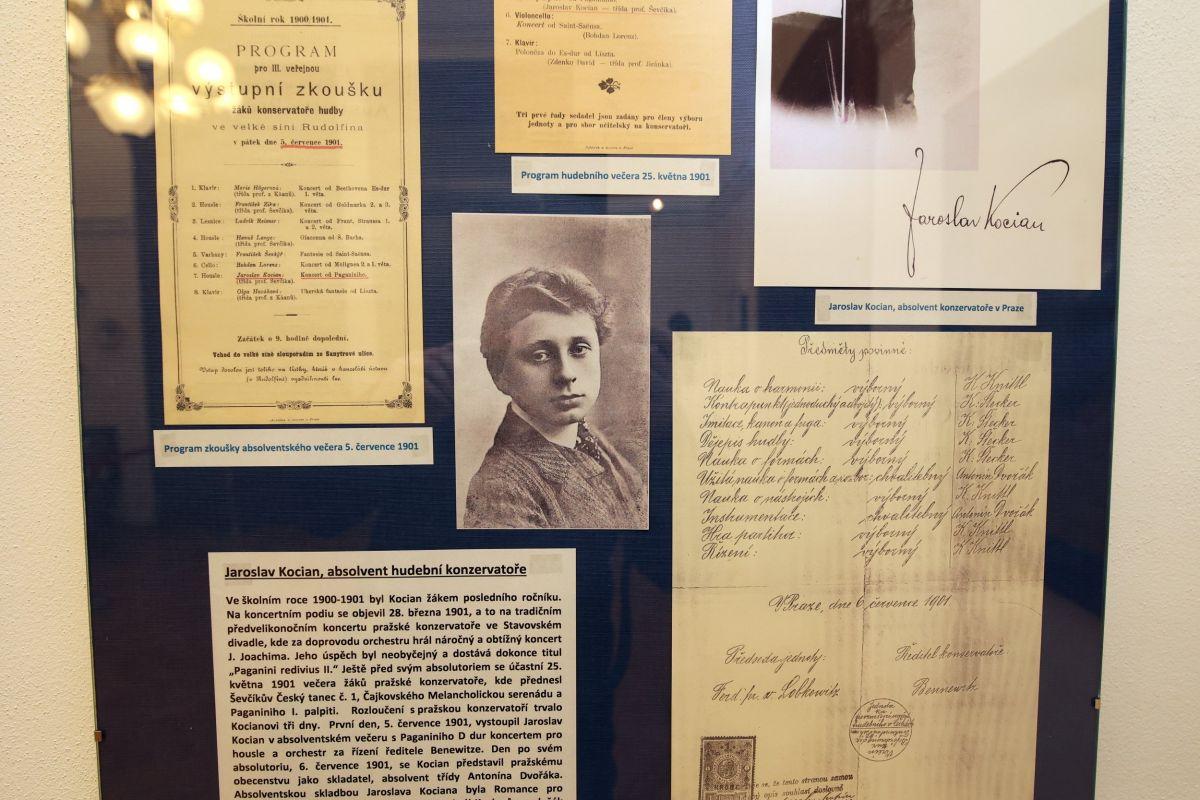 Školní rok 1900/1901.
PROGRAM
pro III. veřejnou
výstupní zkoušku
žáků konservatoře hudby
ve velké síni Rudolfina
v pátek dne 5. července 1901.
1. Klavír: Marie Högerová: Koncert od Beethovena Es-dur
(třída prof. z Káanů). 1. věta.
2. Housle: František Zika: Koncert od Goldmarka 2. a 3.
(třída prof. Ševčíka). věta.
3. Lesnice: Ludvík Reimer: Koncert od Frant. Straussa 1.
a 2. věta.
4. Housle: Lange: Ciaconna od S. Bacha.
(třída prof. Ševčíka).
5. Varhany: František Fantasie od Saint-Saënsa.
6. Cello: Bohdan Lorenz: Koncert od Moliquea 2. a 1. věta.
7. Housle: Jaroslav Kocian: Koncert od Paganiniho.
(třída prof. Ševčíka).
8. Klavír: Olga Uherská fantasie od Liszta.
(třída prof. z Káanů).
Začátek o 9. hodině dopolední.
Vchod do velké síně sloupořadím ze Sanytrové ulice.
Vstup dovolen jest toliko na lístky, kteréž v kanceláři ústavu
(v Rudolfinu) vyzdvihnouti lze.
Program zkoušky absolventského večera 5. července 1901
(Jaroslav Kocian — třída prof. Ševčíka).
6. Violoncello:
Koncert od Saint-Saënsa.
(Bohdan Lorenz).
7. Klavír:
Polonéza do Es-dur od Liszta.
(Zdenko David — třída prof. Jiránka).
Tři prvé řady sedadel jsou zadány pro členy výboru
jednoty a pro sbor učitelský na konservatoři.
Program hudebního večera 25. května 1901
Jaroslav Kocian
Jaroslav Kocian, absolvent konzervatoře v Praze
Předměty povinné:
Nauka o harmonii: výborný K. Knittl
Kontrapunkt (jednoduchý a dvojitý): výborný K. Stecker
Imitace, kanon a fuga: výborný K. Stecker
Dějepis hudby: výborný K. Stecker
Nauka o formách: výborný K. Stecker
Užitá nauka o formách a rozbor: chvalitebný Antonín Dvořák
Nauka o nástrojích: výborný K. Knittl
Instrumentace: chvalitebný Antonín Dvořák
Hra partitur: výborný K. Knittl
Řízení: výborný K. Knittl
V Praze, dne 6. července 1901
Předseda jednoty: Ředitel konservatoře:
Ferd. pr. v. Lobkowitz Bennewitz
že tento stranou samou
opis souhlasí doslovně
Jaroslav Kocian, absolvent hudební konzervatoře
Ve školním roce 1900-1901 byl Kocian žákem posledního ročníku.
Na koncertním podiu se objevil 28. března 1901, a to na tradičním
předvelikonočním koncertu pražské konzervatoře ve Stavovském
divadle, kde za doprovodu orchestru hrál náročný a obtížný koncert
J. Joachima. Jeho úspěch byl neobyčejný a dostává dokonce titul
„Paganini redivius II.“ Ještě před svým absolutoriem se účastní 25.
května 1901 večera žáků pražské konzervatoře, kde přednesl
Ševčíkův Český tanec č. 1, Čajkovského Melancholickou serenádu a
Paganiniho I. palpiti. Rozloučení s pražskou konzervatoří trvalo
Kocianovi tři dny. První den, 5. července 1901, vystoupil Jaroslav
Kocian v absolventském večeru s Paganiniho D dur koncertem pro
housle a orchestr za řízení ředitele Benewitze. Den po svém
absolutoriu, 6. července 1901, se Kocian představil pražskému
obecenstvu jako skladatel, absolvent třídy Antonína Dvořáka.
Absolventskou skladbou Jaroslava Kociana byla Romance pro